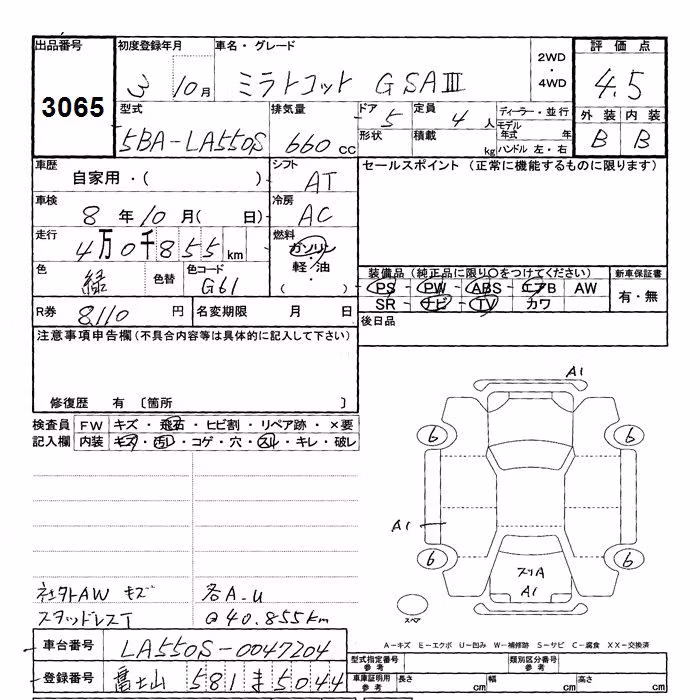 出品番号 初度登録年月 車名・グレード 2WD・4WD 評価点
3065 3 10月 ミラトコット GSAⅢ 4.5
型式 排気量 ドア 5 定員 4人 ディーラー・並行 外装 内装
5BA-LA550S 660cc 形状 積載 kg モデル年式 年 ハンドル 左・右 B B
車歴 シフト セールスポイント(正常に機能するものに限ります)
自家用・( ) AT
車検 冷房
8年10月( 日) AC
走行 燃料
4万0千855km ガソリン・軽油
色 色替 色コード ( ) 装備品(純正品に限り○をつけてください) 新車保証書
緑 G61 PS - PW - ABS - エアB AW 有・無
SR - ナビ - TV カワ
R券 8,110円 名変期限 月 日 後日品
注意事項申告欄(不具合内容等は具体的に記入して下さい)
修復歴 有 〔箇所 〕
検査員 FW キズ・飛石・ヒビ割・リペア跡・×要
記入欄 内装 キズ・汚れ・コゲ・穴・スレ・キレ・破レ
A1
6 6
A1
6 6
スリA
A1
スペア
社外AW キズ 各A.U
スタッドレスT @40.855km
A-キズ E-エクボ U-凹み W-補修跡 S-サビ C-腐食 XX-交換済
車台番号 LA550S-0047204
型式指定番号 参考 類別区分番号 参考
登録番号 富士山 581 ま 5044
車庫証明用 参考 長さ cm 幅 cm 高さ cm